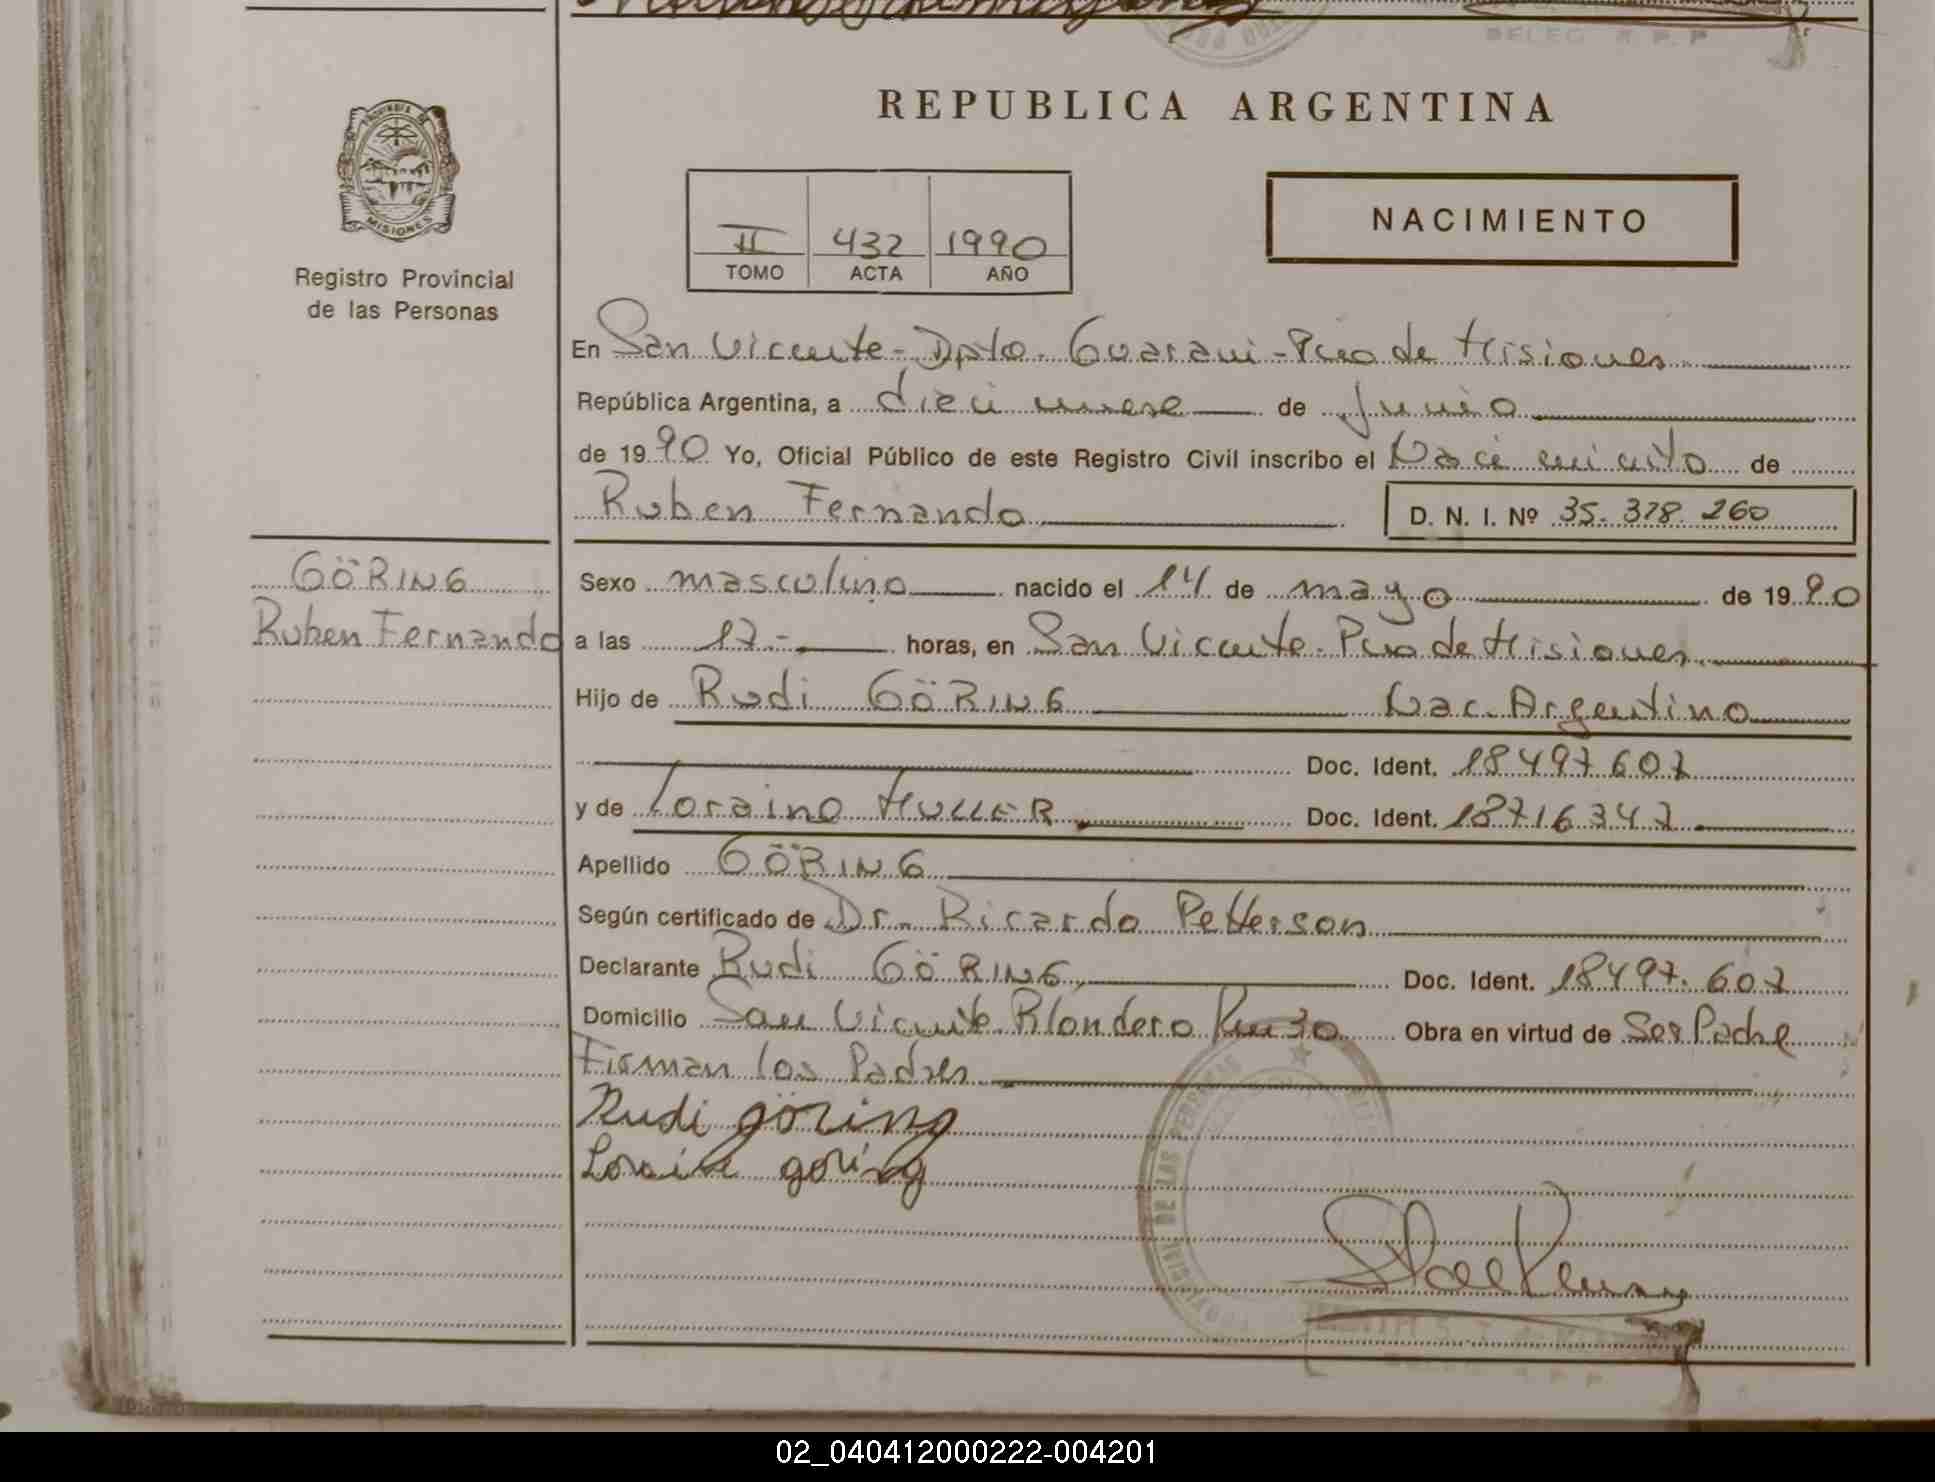 REPUBLICA ARGENTINA
PROVINCIA DE
MISIONES
Registro Provincial
de las Personas
II 432 1990
TOMO ACTA AÑO
NACIMIENTO
En San Vicente - Dpto. Guarani - Pcia de Misiones
República Argentina, a dieci nueve de Junio
de 1990 Yo, Oficial Público de este Registro Civil inscribo el Nacimiento de
Ruben Fernando D. N. I. Nº 35.328.260
GÖRING
Ruben Fernando
Sexo masculino nacido el 14 de mayo de 1990
a las 17- horas, en San Vicente - Pcia de Misiones
Hijo de Rudi GÖRING Nac. Argentino
Doc. Ident. 18497607
y de Loraine MULLER Doc. Ident. 18716347
Apellido GÖRING
Según certificado de Dr. Ricardo Petterson
Declarante Rudi GÖRING Doc. Ident. 18497.607
Domicilio San Vicente Blondero Km 30 Obra en virtud de Ser Padre
Firman los Padres
Rudi göring
Loraine goring
PROVINCIAL DE LAS PERSONAS
02_040412000222-004201